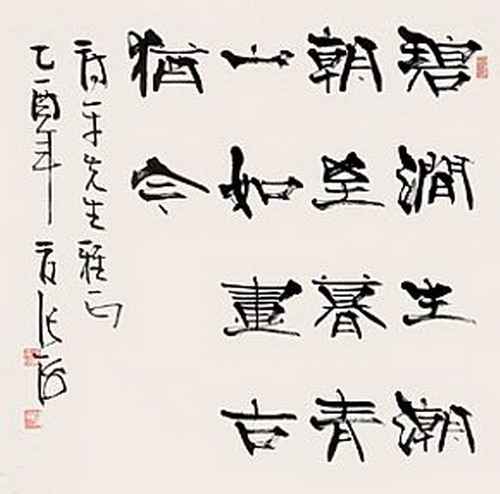 碧澗生潮
朝至暮青
山如畫古
猶今
平先生雅正
乙酉年